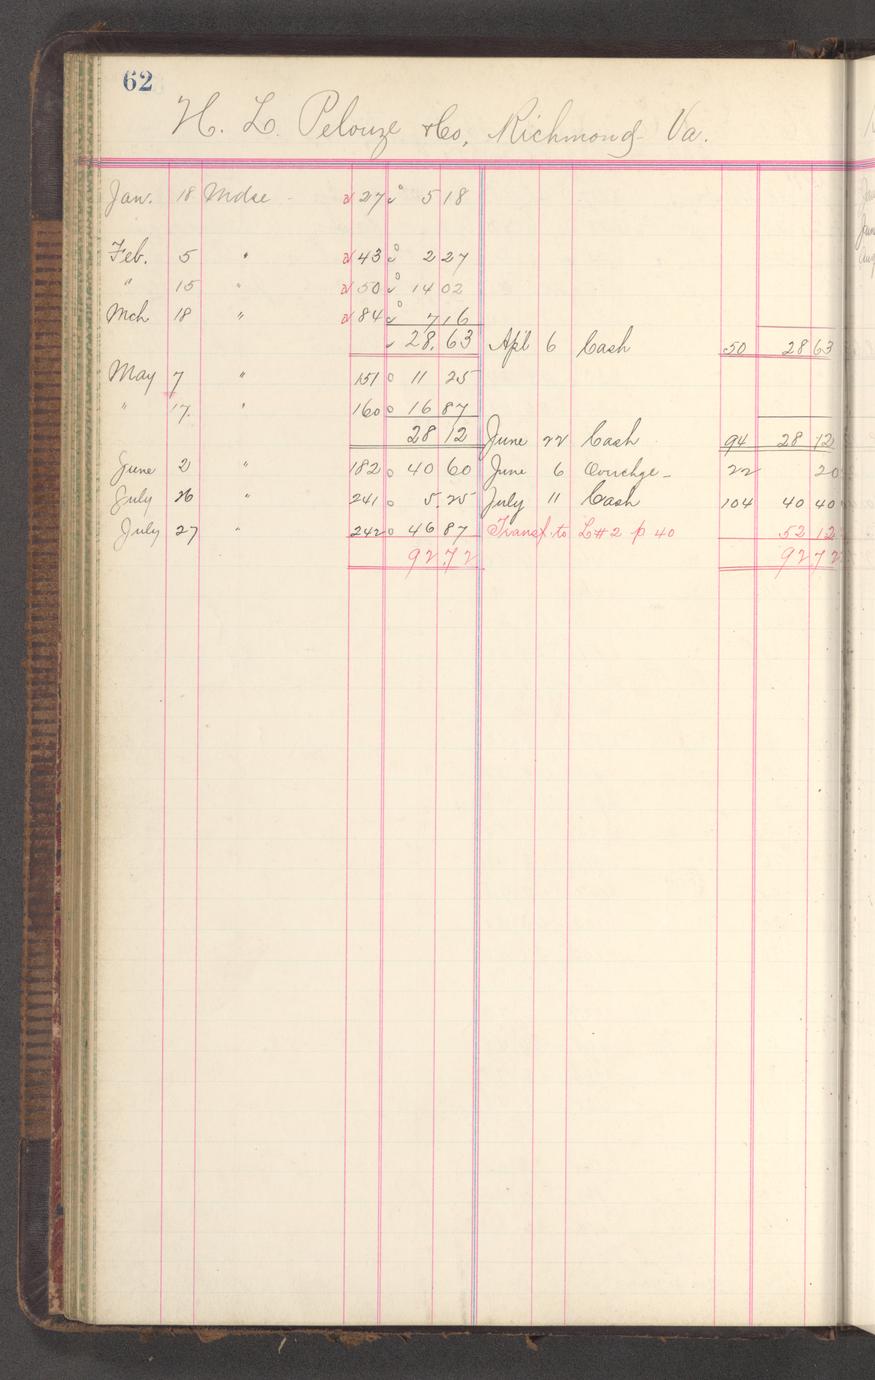 62
H. L. Pelouze & Co, Richmond Va.
Jan. 18 Mdse 27 5 18
Feb. 5 " 43 2 27
" 15 " 50 14 02
Mch 18 " 84 7 16
28.63 Apl 6 Cash 50 28 63
May 7 " 151 11 25
" 17 " 160 16 87
28 12 June 22 Cash 94 28 12
June 2 " 182 40 60 June 6 Overchge 22 20
July 26 " 241 5.25 July 11 Cash 104 40 40
July 27 " 242 46 87 Transf. to L#2 p 40 52 12
92 72 92 72